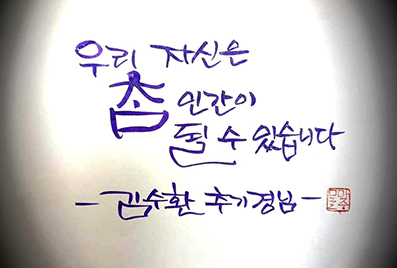 우리 자신은
참 인간이
될 수 있습니다
- 김수환 추기경님 -